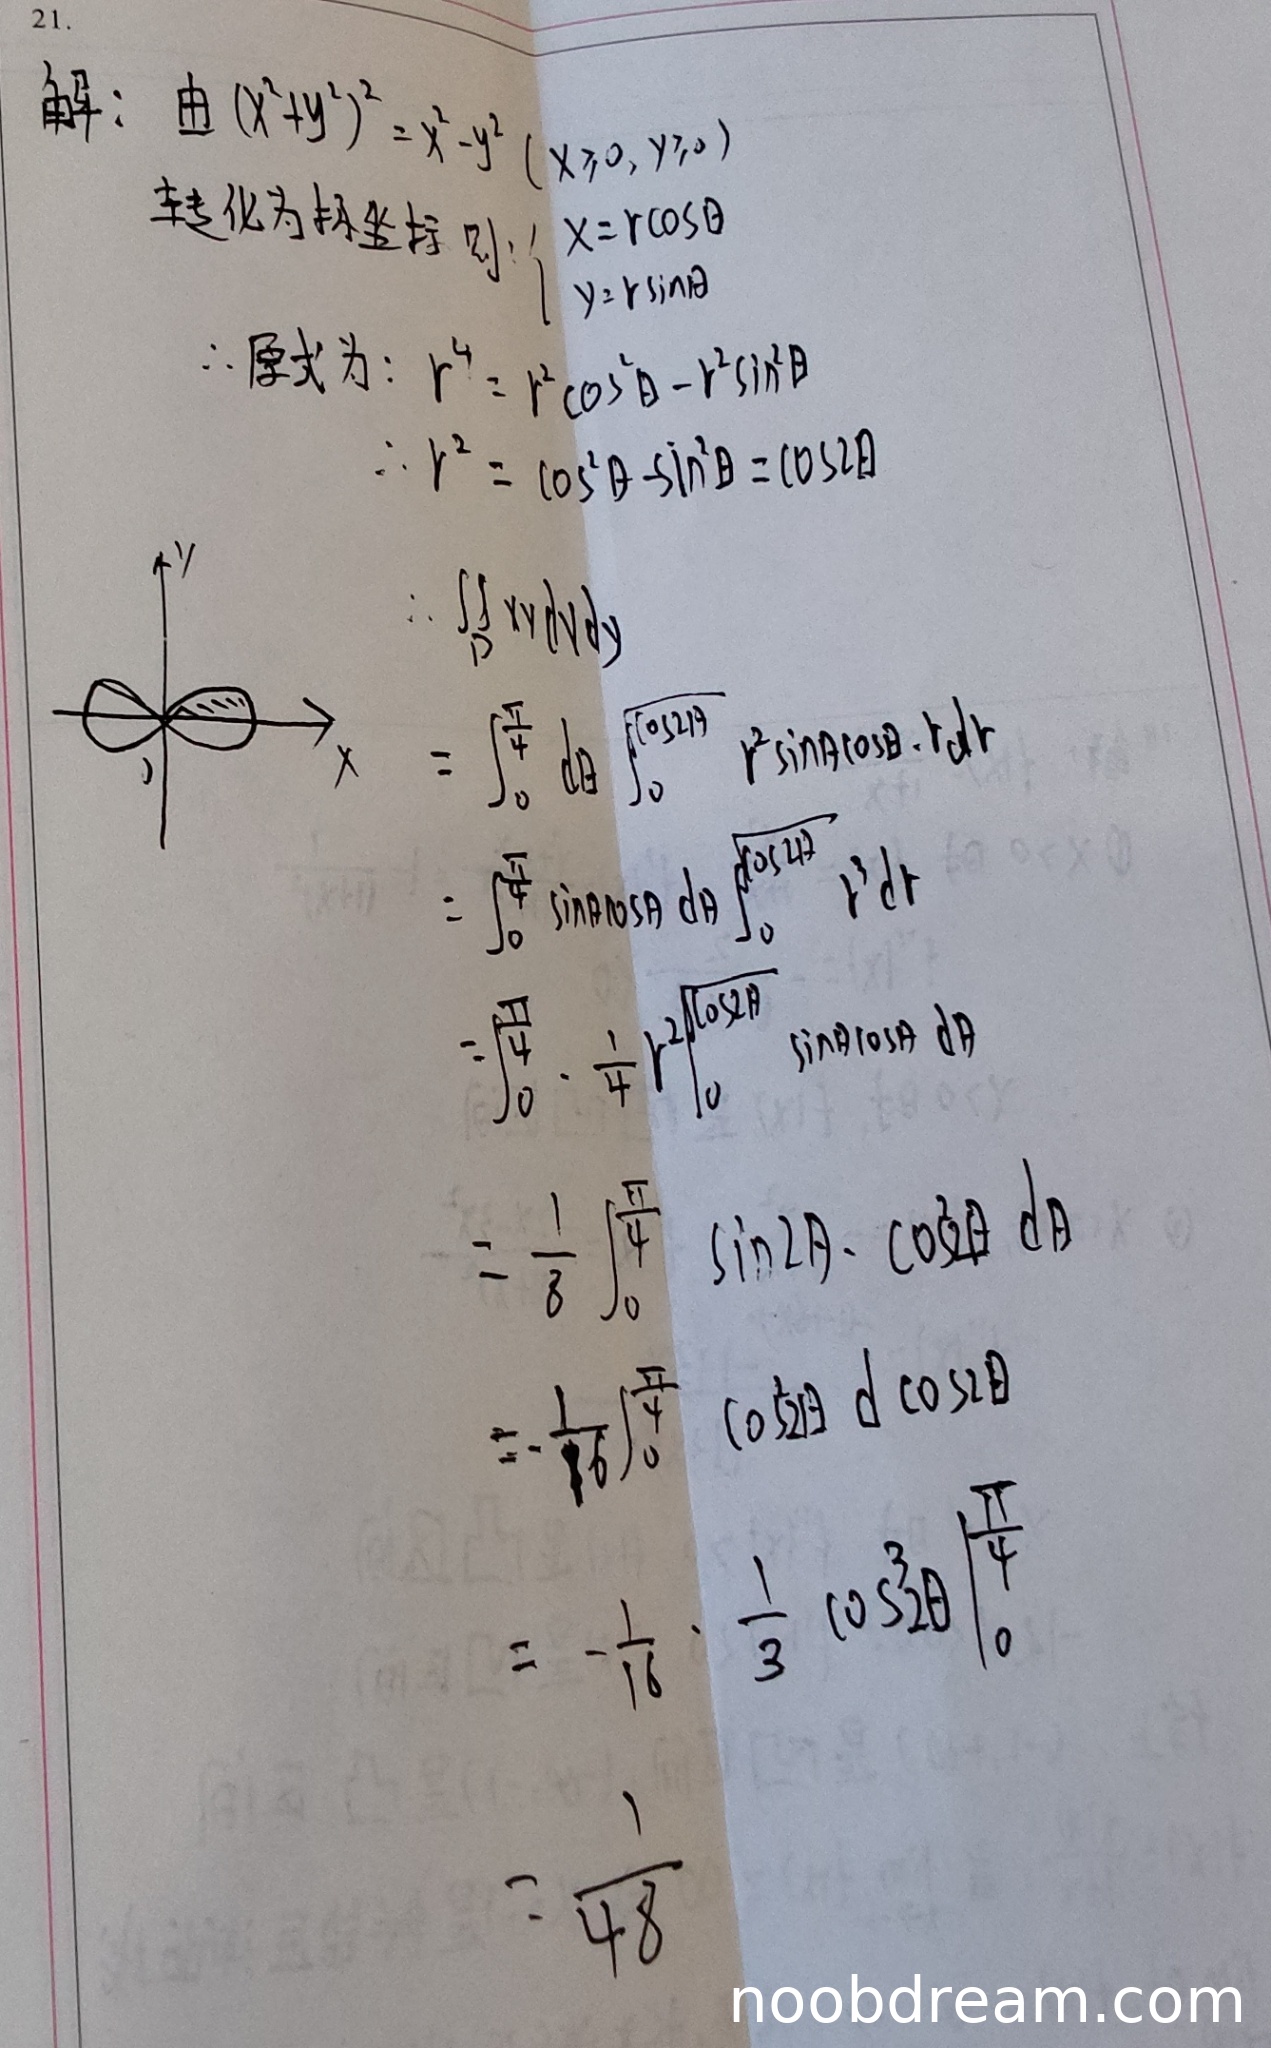 21.
解: 由 (x²+y²)² = x²-y² (x≥0, y≥0)
转化为极坐标 则: { x=rcosθ
y=rsinθ
∴原式为: r⁴ = r²cos²θ - r²sin²θ
∴ r² = cos²θ-sin²θ = cos2θ
y
x
∴ ∬_D xydxdy
= ∫₀^(π/4) dθ ∫₀^(√cos2θ) r²sinθcosθ·rdr
= ∫₀^(π/4) sinθcosθ dθ ∫₀^(√cos2θ) r³dr
= ∫₀^(π/4) · 1/4 r² |₀^(√cos2θ) sinθcosθ dθ
= 1/8 ∫₀^(π/4) sin2θ · cos²2θ dθ
= -1/16 ∫₀^(π/4) cos²2θ d cos2θ
= -1/16 · 1/3 cos³2θ |₀^(π/4)
= 1/48
noobdream.com